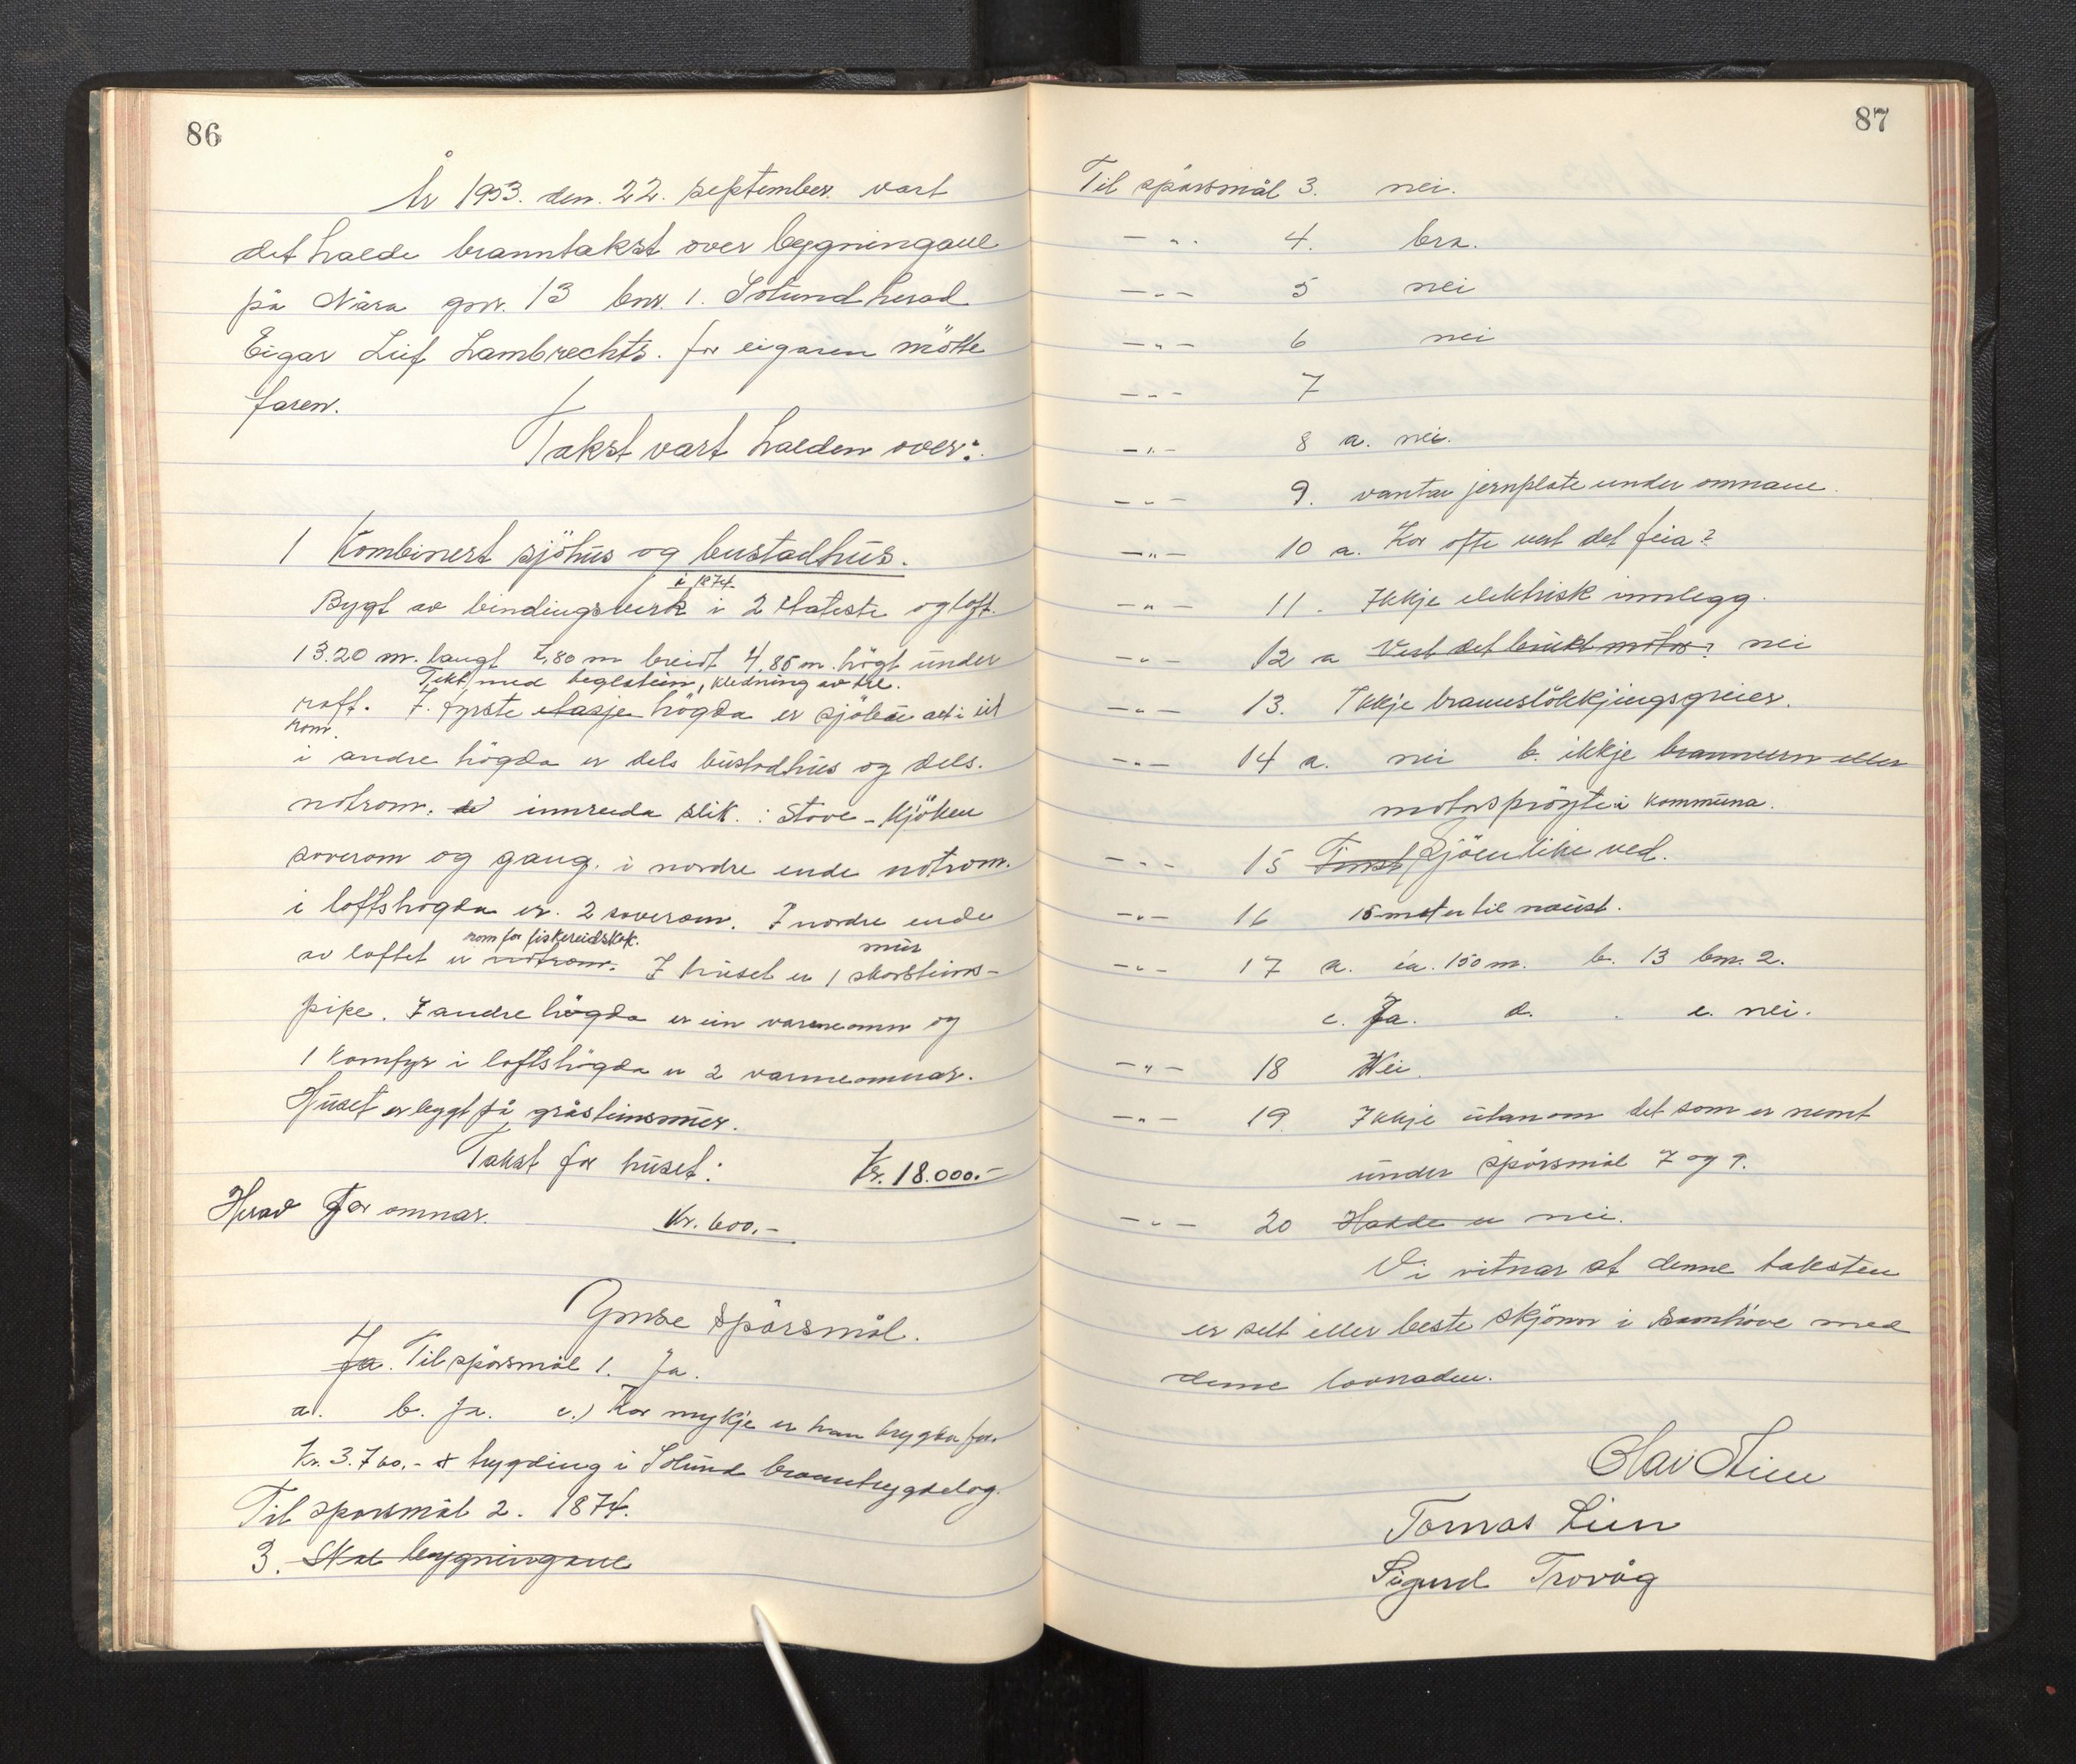 86
År 1953. den. 22. september. vart
det halde branntakst over bygningane
på Nåra gnr. 13 bnr. 1. Solund herad
Eigar Leif Lambrechts. for eigaren mötte
faren.
Takst vart halden over:
1 Kombinert sjöhus og bustadhus.
i 1874.
Bygt av bindingsverk i 2 etasjer og loft.
13.20 m. langt 7,80 m breidt 4.85 m. högt under
Tekt med teglstein, kledning av tre.
raft. I fyrste etasje högda er sjöbu alt i eit
rom.
i andre högda er dels bustadhus og dels.
notrom. innreida slik. : Stove - Kjöken
soverom og gang. i nordre ende notrom.
i loftshögda er. 2 soverom. I nordre ende
rom for fiskereidskap. mur
av loftet er notrom. I huset er 1 skorsteins-
pipe. I andre högda er ein varmeomn og
1 komfyr i loftshögda er 2 varmeomnar.
Huset er bygt på gråsteinsmur.
Takst for huset: Kr. 18.000.-
Herav for omnar. Kr. 600,-
Ymse spörsmål.
Ja. Til spörsmål 1. Ja.
a. b. Ja. c.) Kor mykje er han trygda for.
Kr. 3.760.- trygding i Solund branntrygdelag.
Til sporsmål 2. 1874.
3. Skal bygningane
87
Til spörsmål 3. nei.
-„- 4. bra.
-„- 5 nei
-„- 6 nei
-„- 7
-„- 8 a. nei.
-„- 9. vantar jernplate under omnane.
-„- 10 a. Kor ofte vert det feia?
-„- 11. Ikkje elektrisk innlegg.
-„- 12 a Vert det brukt motor? nei
-„- 13. Ikkje brannslökkjingsgreier.
-„- 14 a. nei b. ikkje brannvern eller
motorspröyte i kommuna.
-„- 15 Finst Sjöen like ved.
-„- 16 15 meter til naust.
-„- 17 a. ca. 150 m. b. 13 bnr. 2.
c. Ja. d. . e. nei.
-„- 18 Nei.
-„- 19 Ikkje utanom det som er nemt
under spörsmål 7 og 9.
-„- 20 nei.
Vi vitnar at denne taksten
er sett etter beste skjönn i samhöve med
denne lovnaden.
Olav
Tomas Lien
Sigurd Trovåg